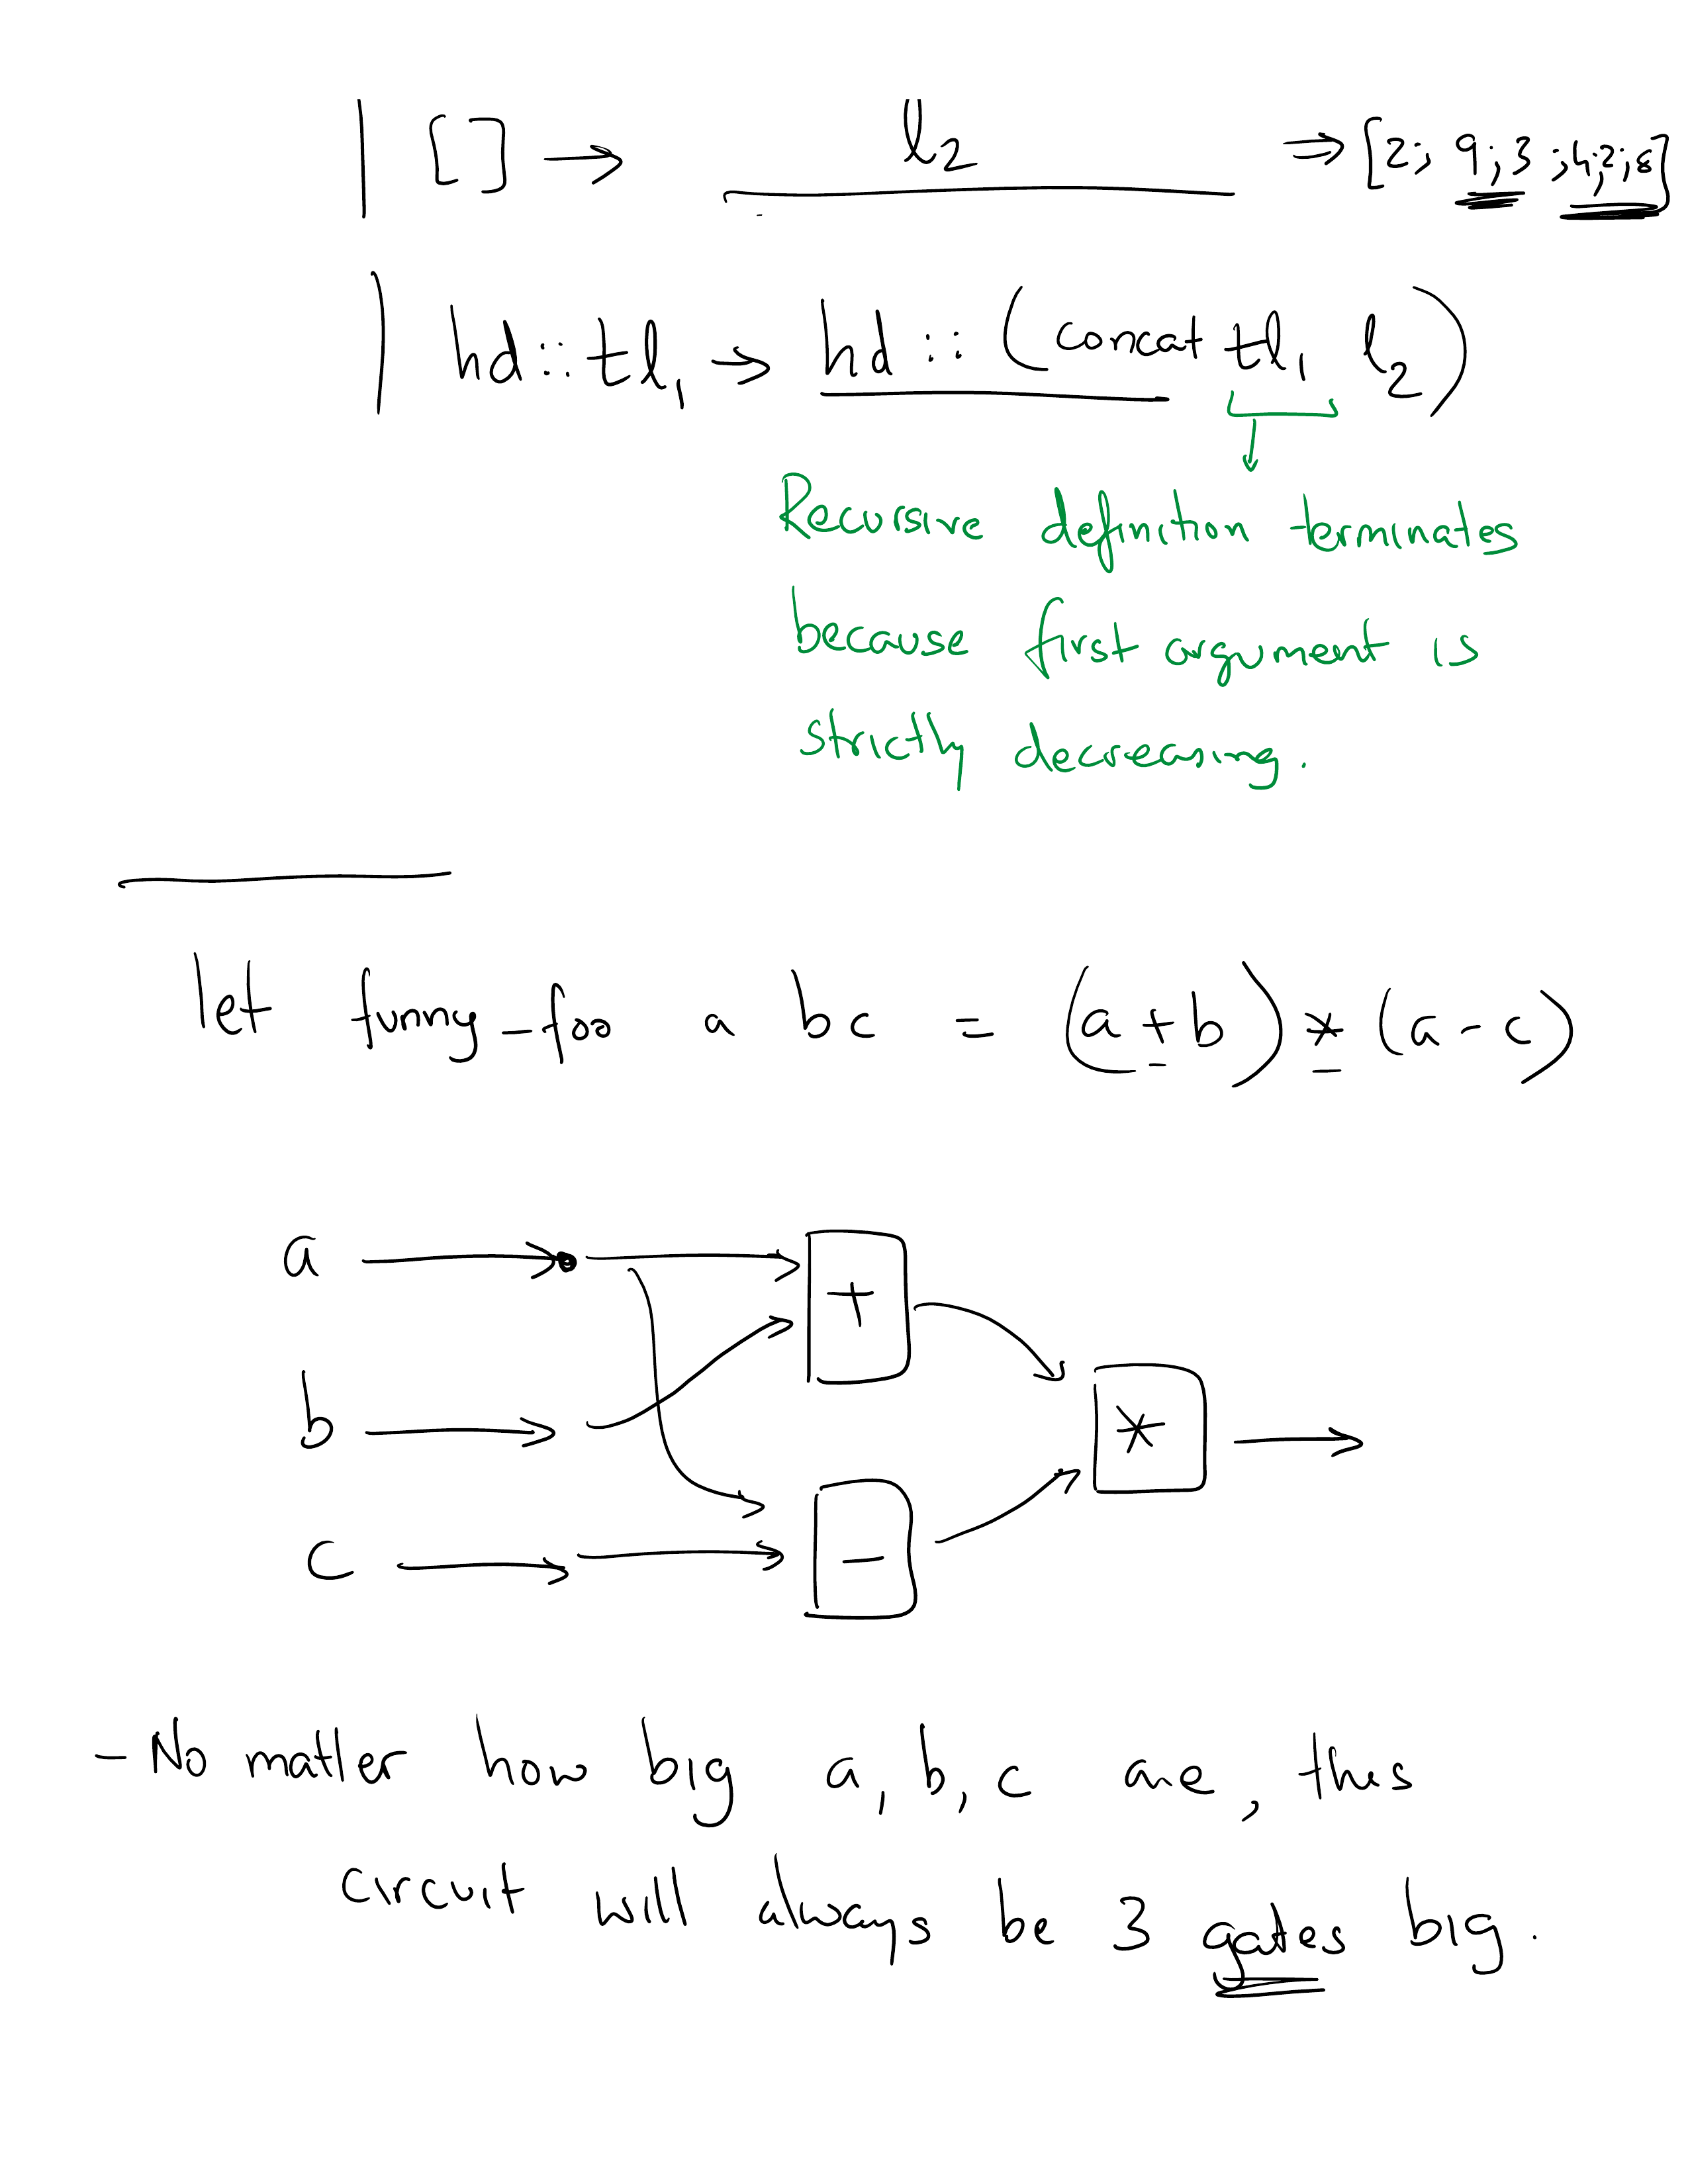 | [] → l₂ ⇒ [2; 9; 3; 4; 2; 8]
| hd :: tl₁ → hd :: (concat tl₁ l₂)
Recursive definition terminates
because first argument is
strictly decreasing.
let funny_foo a b c = (a + b) * (a - c)
a
+
b
*
c
-
- No matter how big a, b, c are, this
circuit will always be 3 gates big.